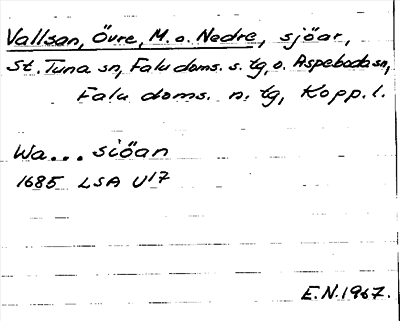 Vallsan, Övre, M. o. Nedre, sjöar,
St. Tuna sn, Falu doms. s. tg, o. Aspeboda sn,
Falu doms. n. tg, Kopp. l.
Wa... siöan
1685 LSA U17
E.N. 1967.